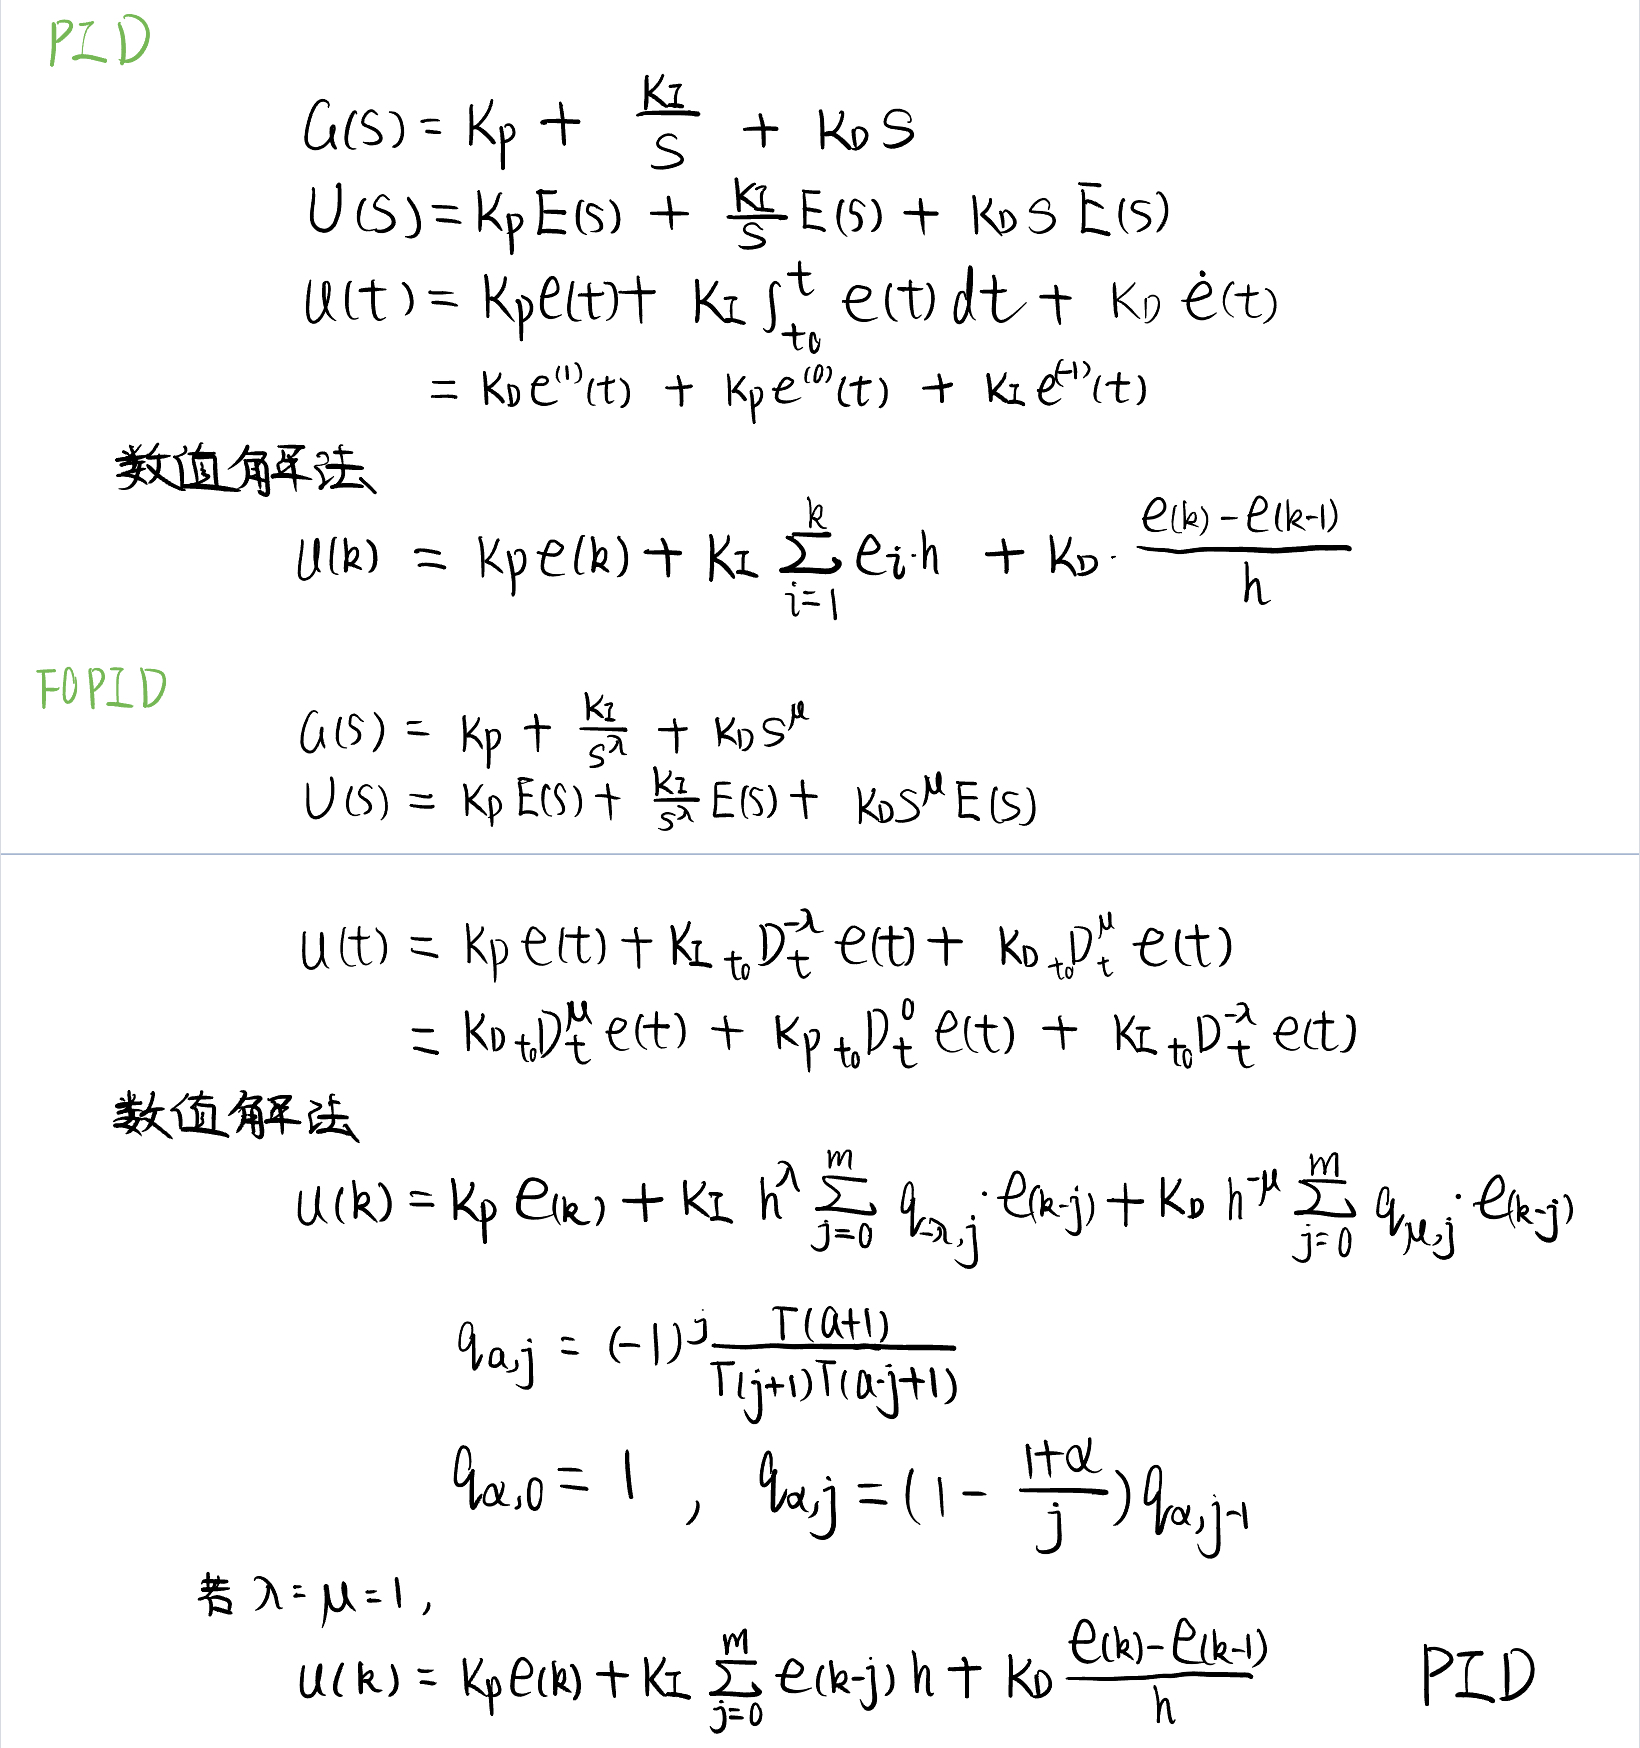 PID
G(S) = Kp + KI/S + KD S
U(S) = Kp E(S) + KI/S E(S) + KD S E(S)
u(t) = Kp e(t) + KI ∫_{t0}^{t} e(t) dt + KD ė(t)
= KD e^{(1)}(t) + Kp e^{(0)}(t) + KI e^{(-1)}(t)
数值解法
u(k) = Kp e(k) + KI ∑_{i=1}^{k} e_i·h + KD · (e(k) - e(k-1))/h
FOPID
G(S) = Kp + KI/S^λ + KD S^μ
U(S) = Kp E(S) + KI/S^λ E(S) + KD S^μ E(S)
u(t) = Kp e(t) + KI _{t0}D_t^{-λ} e(t) + KD _{t0}D_t^{μ} e(t)
= KD _{t0}D_t^{μ} e(t) + Kp _{t0}D_t^{0} e(t) + KI _{t0}D_t^{-λ} e(t)
数值解法
u(k) = Kp e(k) + KI h^λ ∑_{j=0}^{m} q_{-λ,j}·e(k-j) + KD h^{-μ} ∑_{j=0}^{m} q_{μ,j}·e(k-j)
q_{a,j} = (-1)^j Γ(a+1)/(Γ(j+1)Γ(a-j+1))
q_{α,0} = 1 , q_{α,j} = (1 - (1+α)/j) q_{α,j-1}
若 λ = μ = 1 ,
u(k) = Kp e(k) + KI ∑_{j=0}^{m} e(k-j) h + KD (e(k) - e(k-1))/h PID